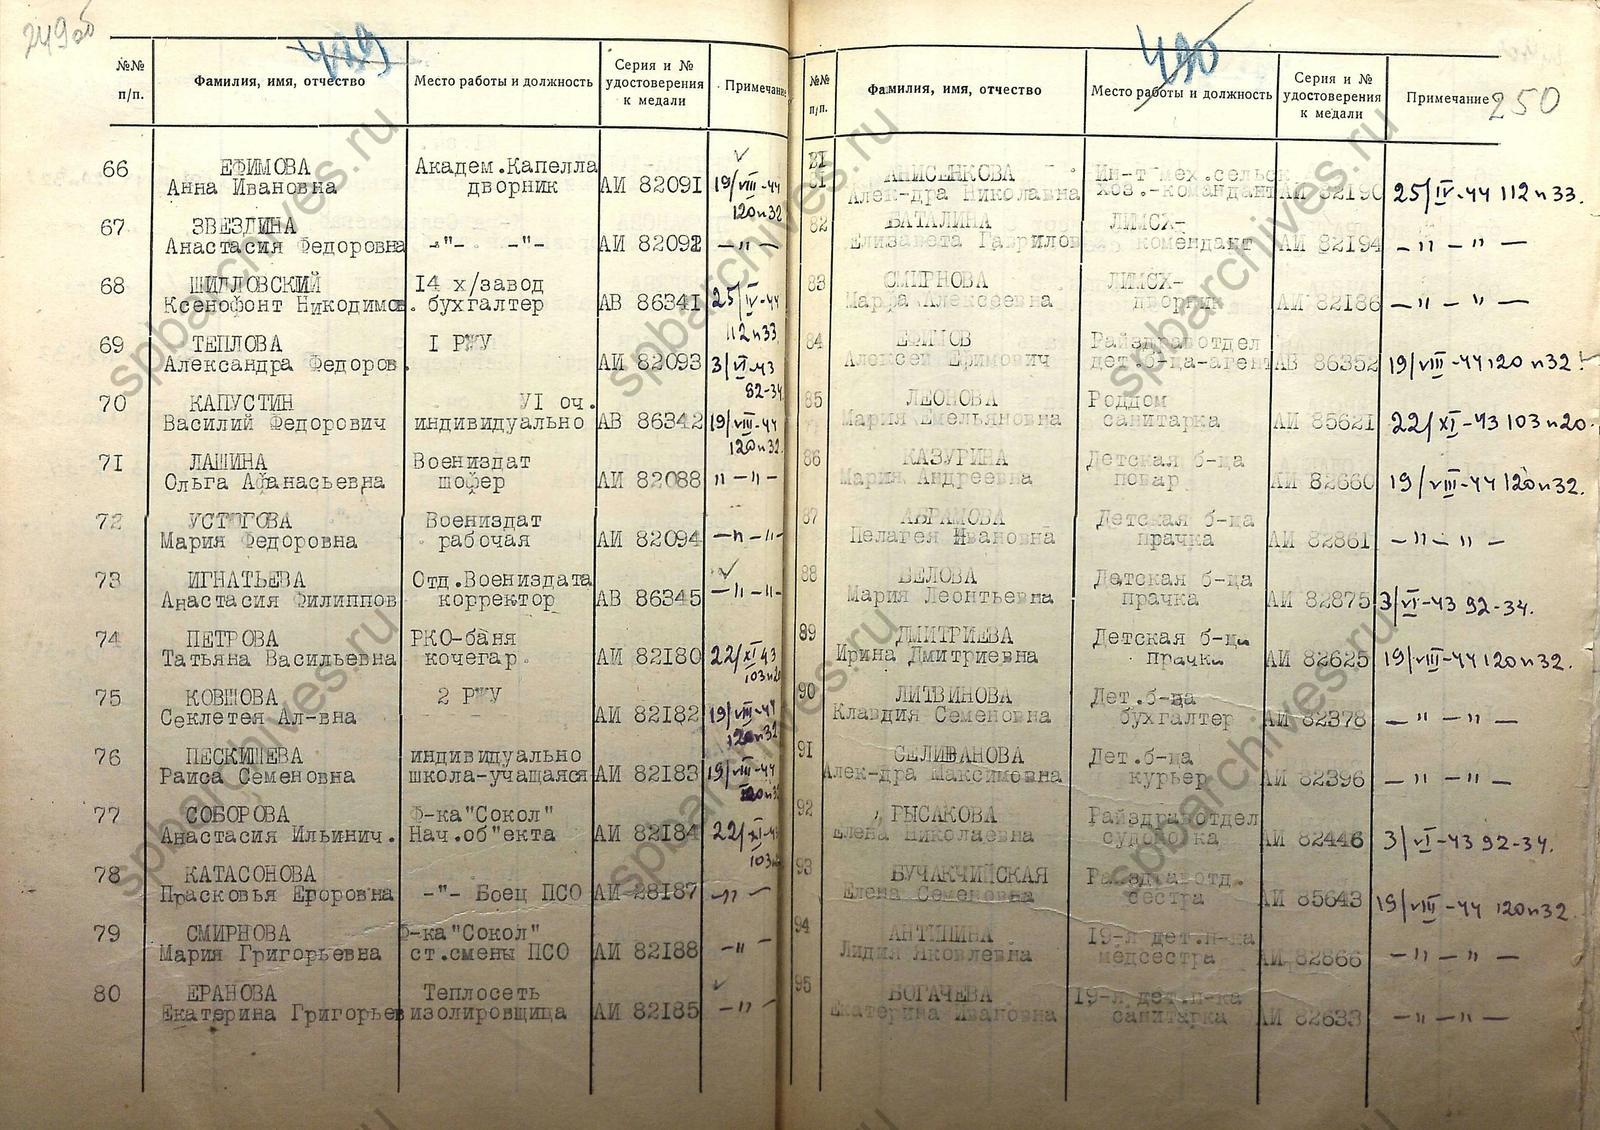 249об
489
№№ п/п.
Фамилия, имя, отчество
Место работы и должность
Серия и № удостоверения к медали
Примечание
66 ЕФИМОВА Академ.Капелла
Анна Ивановна дворник АИ 82091 19/VIII-44 120п32
67 ЗВЕЗДИНА
Анастасия Федоровна -"- -"- АИ 82092 — " —
68 ШИДЛОВСКИЙ I4 х/завод
Ксенофонт Никодимов. бухгалтер АВ 86341 25/IV-44 112п33.
69 ТЕПЛОВА I РЖУ
Александра Федоров. АИ 82093 3/VI-43 92-34.
70 КАПУСТИН УI оч.
Василий Федорович индивидуально АВ 86342 19/VIII-44 120п32.
71 ЛАШИНА Воениздат
Ольга Афанасьевна шофер АИ 82088 " — " —
72 УСТЮГОВА Воениздат
Мария Федоровна рабочая АИ 82094 — " — " —
73 ИГНАТЬЕВА Отд.Воениздата
Анастасия Филиппов корректор АВ 86345 — " — " —
74 ПЕТРОВА РКО-баня
Татьяна Васильевна кочегар АИ 82180 22/XI 43 103п20
75 КОВШОВА 2 РЖУ
Секлетея Ал-вна АИ 82182 19/VIII-44 120п32
76 ПЕСКИШЕВА индивидуально
Раиса Семеновна школа-учащаяся АИ 82183 19/VIII-44 120п32
77 СОБОРОВА Ф-ка"Сокол"
Анастасия Ильинич. Нач.об"екта АИ 82184 22/XI-43 103п
78 КАТАСОНОВА
Прасковья Егоровна -"- Боец ПСО АИ 28187 — " —
79 СМИРНОВА Ф-ка"Сокол"
Мария Григорьевна ст.смены ПСО АИ 82188 — " —
80 ЕРАНОВА Теплосеть
Екатерина Григорьев изолировщица АИ 82185 — " —
490
250
№№ п/п.
Фамилия, имя, отчество
Место работы и должность
Серия и № удостоверения к медали
Примечание
81 АНИСЕНКОВА Ин-т мех.сельск
Алек-дра Николавна хоз.-комендант АИ 82190 25/IV-44 112п33.
82 БАТАЛИНА ЛИМСХ-
Елизавета Гаврилов комендант АИ 82194 — " — " —
83 СМИРНОВА ЛИМСХ-
Марфа Алексеевна дворник АИ 82186 — " — " —
84 ЕФИМОВ Райздравотдел
Алексей Ефимович дет.б-ца-агент АВ 86352 19/VIII-44 120п32
85 ЛЕОНОВА Роддом
Мария Емельяновна санитарка АИ 85621 22/XI-43 103п20.
86 КАЗУРИНА Детская б-ца
Мария Андреевна повар АИ 82660 19/VIII-44 120п32.
87 АБРАМОВА Детская б-ца
Пелагея Ивановна прачка АИ 82861 — " — " —
88 БЕЛОВА Детская б-ца
Мария Леонтьевна прачка АИ 82875 3/VI-43 92-34.
89 ДМИТРИЕВА Детская б-ца
Ирина Дмитриевна прачка АИ 82625 19/VIII-44 120п32.
90 ЛИТВИНОВА Дет.б-ца
Клавдия Семеновна бухгалтер АИ 82378 — " — " —
91 СЕЛИВАНОВА Дет.б-ца
Алек-дра Максимовна курьер АИ 82396 — " — " —
92 РЫСАКОВА Райздравотдел
Елена Николаевна АИ 82446 3/VI-43 92-34.
93 БУЧАКЧИЙСКАЯ Райздравотд.
Елена Семеновна сестра АИ 85643 19/VIII-44 120п32
94 АНТИПИНА 19-я дет.п-ка
Лидия Яковлевна медсестра АИ 82866 — " — " —
95 БОГАЧЕВА 19-я дет.п-ка
Екатерина Ивановна санитарка АИ 82633 — " — " —
spbarchives.ru